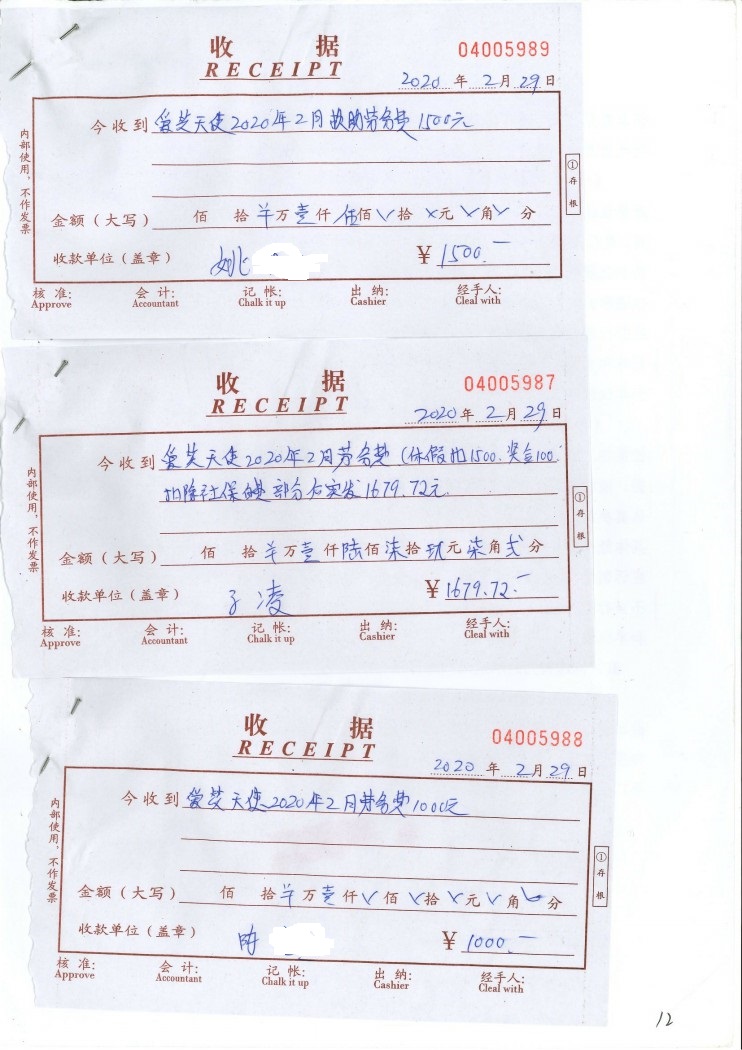 收 据
RECEIPT
04005989
2020 年 2 月 29 日
今收到 爱芺天使2020年2月扶助劳务费1500元
金额（大写） 佰 拾 羊 万 壹 仟 伍 佰 拾 元 角 分
收款单位（盖章） 姚 ￥ 1500.—
核 准: 会 计: 记 帐: 出 纳: 经手人:
Approve Accountant Chalk it up Cashier Cleal with
内部使用，不作发票
①存根
收 据
RECEIPT
04005987
2020 年 2 月 29 日
今收到 爱芺天使2020年2月劳务费（休假扣1500.奖金100.
扣除社保 部分后实发1679.72元
金额（大写） 佰 拾 羊 万 壹 仟 陆 佰 柒 拾 玖 元 柒 角 弍 分
收款单位（盖章） 子凌 ￥ 1679.72.—
核 准: 会 计: 记 帐: 出 纳: 经手人:
Approve Accountant Chalk it up Cashier Cleal with
内部使用，不作发票
①存根
收 据
RECEIPT
04005988
2020 年 2 月 29 日
今收到 爱芺天使2020年2月劳务费1000元
金额（大写） 佰 拾 羊 万 壹 仟 佰 拾 元 角 分
收款单位（盖章） ￥ 1000.—
核 准: 会 计: 记 帐: 出 纳: 经手人:
Approve Accountant Chalk it up Cashier Cleal with
内部使用，不作发票
①存根
12